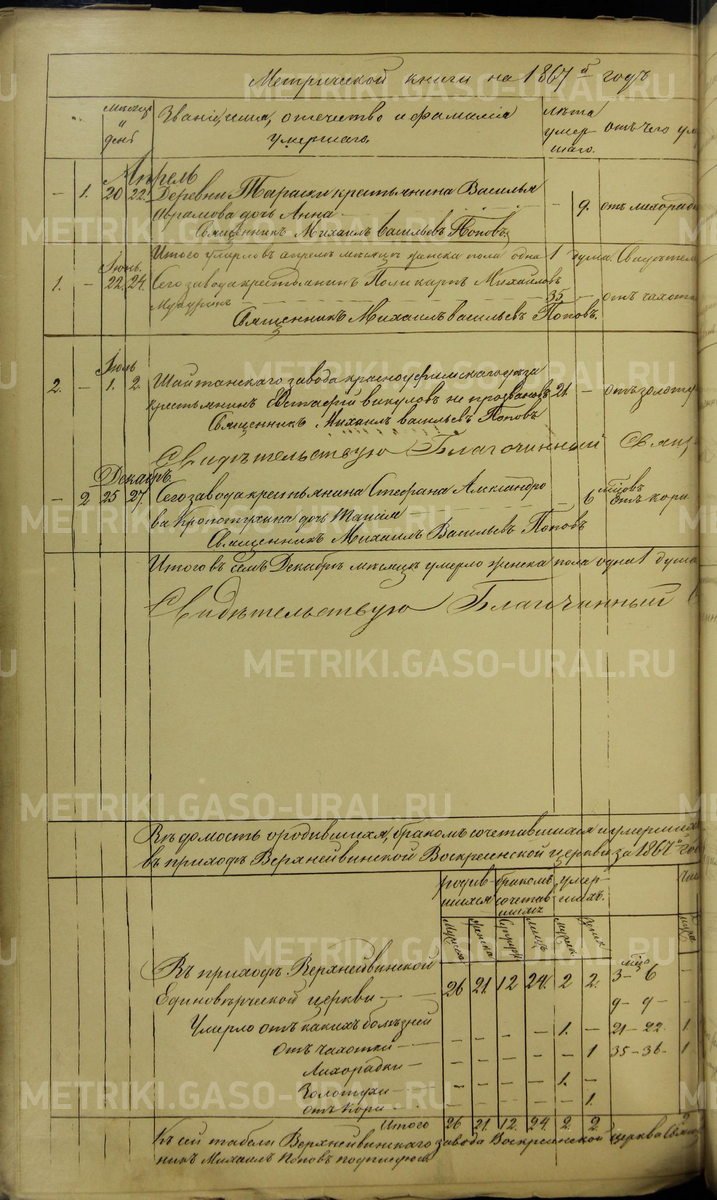 Метрической книги на 1867й годъ
Месяцъ и день
Званіе, имя, отечество и фамилія умершаго.
лѣта умершаго.
отъ чего ум
Апрель
– 1. 20 22. Деревни Тараски крестьянина Василья
Абрамова дочь Анна – 9. отъ лихорад
Священникъ Михаилъ Васильевъ Поповъ
Итого умерло въ апрелѣ мѣсяцѣ женска пола одна 1 душа. Свидѣтел
Іюнь
1. – 22. 24. Сего завода крестьянинъ Поликарпъ Михайловъ
35 – отъ чахотк
Священникъ Михаилъ Васильевъ Поповъ.
Іюль
2. – 1. 2. Шайтанскаго завода красноуфимскаго уезда
крестьянинъ Евстафій Викуловъ не прозванъ 21 – отъ золоту
Священникъ Михаилъ Васильевъ Поповъ
Свидѣтельствую Благочинный Свящ
Декабрь
– 2 25 27. Сего завода крестьянина Стефана Алксандро
ва Кропотухина дочь Таисія – 6 мѣсяцовъ отъ кори
Священникъ Михаилъ Васильевъ Поповъ
Итого въ семъ Декабрѣ мѣсяцѣ умерло женска пола одна 1 душа
Свидѣтельствую Благочинный
Вѣдомость о родившихся, бракомъ сочетавшихся и умершихъ
въ приходѣ Верхнейвинской Воскресенской церкви за 1867й го
родившихся бракомъ сочетавшихся умершихъ.
Мужска Женска Супруж Лицъ Мужска Женск
Въ приходѣ Верхнейвинской
Единовѣрческой церкви – 26 21. 12 24. 2 2. 3 – 6 –
9 – 9 –
Умерло отъ какихъ болѣзней – – – – 1. – 21 – 22. 1
Отъ чахотки – – – – – 1 35 – 36 – 1
Лихорадки – – – – – –
Золотухи – – – – 1. –
отъ Кори – – – – – 1.
Итого 26 21. 12. 24. 2. 2.
Къ сей табели Верхнейвинскаго завода Воскресенской церкви Свящ
нникъ Михаилъ Поповъ подписуюсь
METRIKI.GASO-URAL.RU